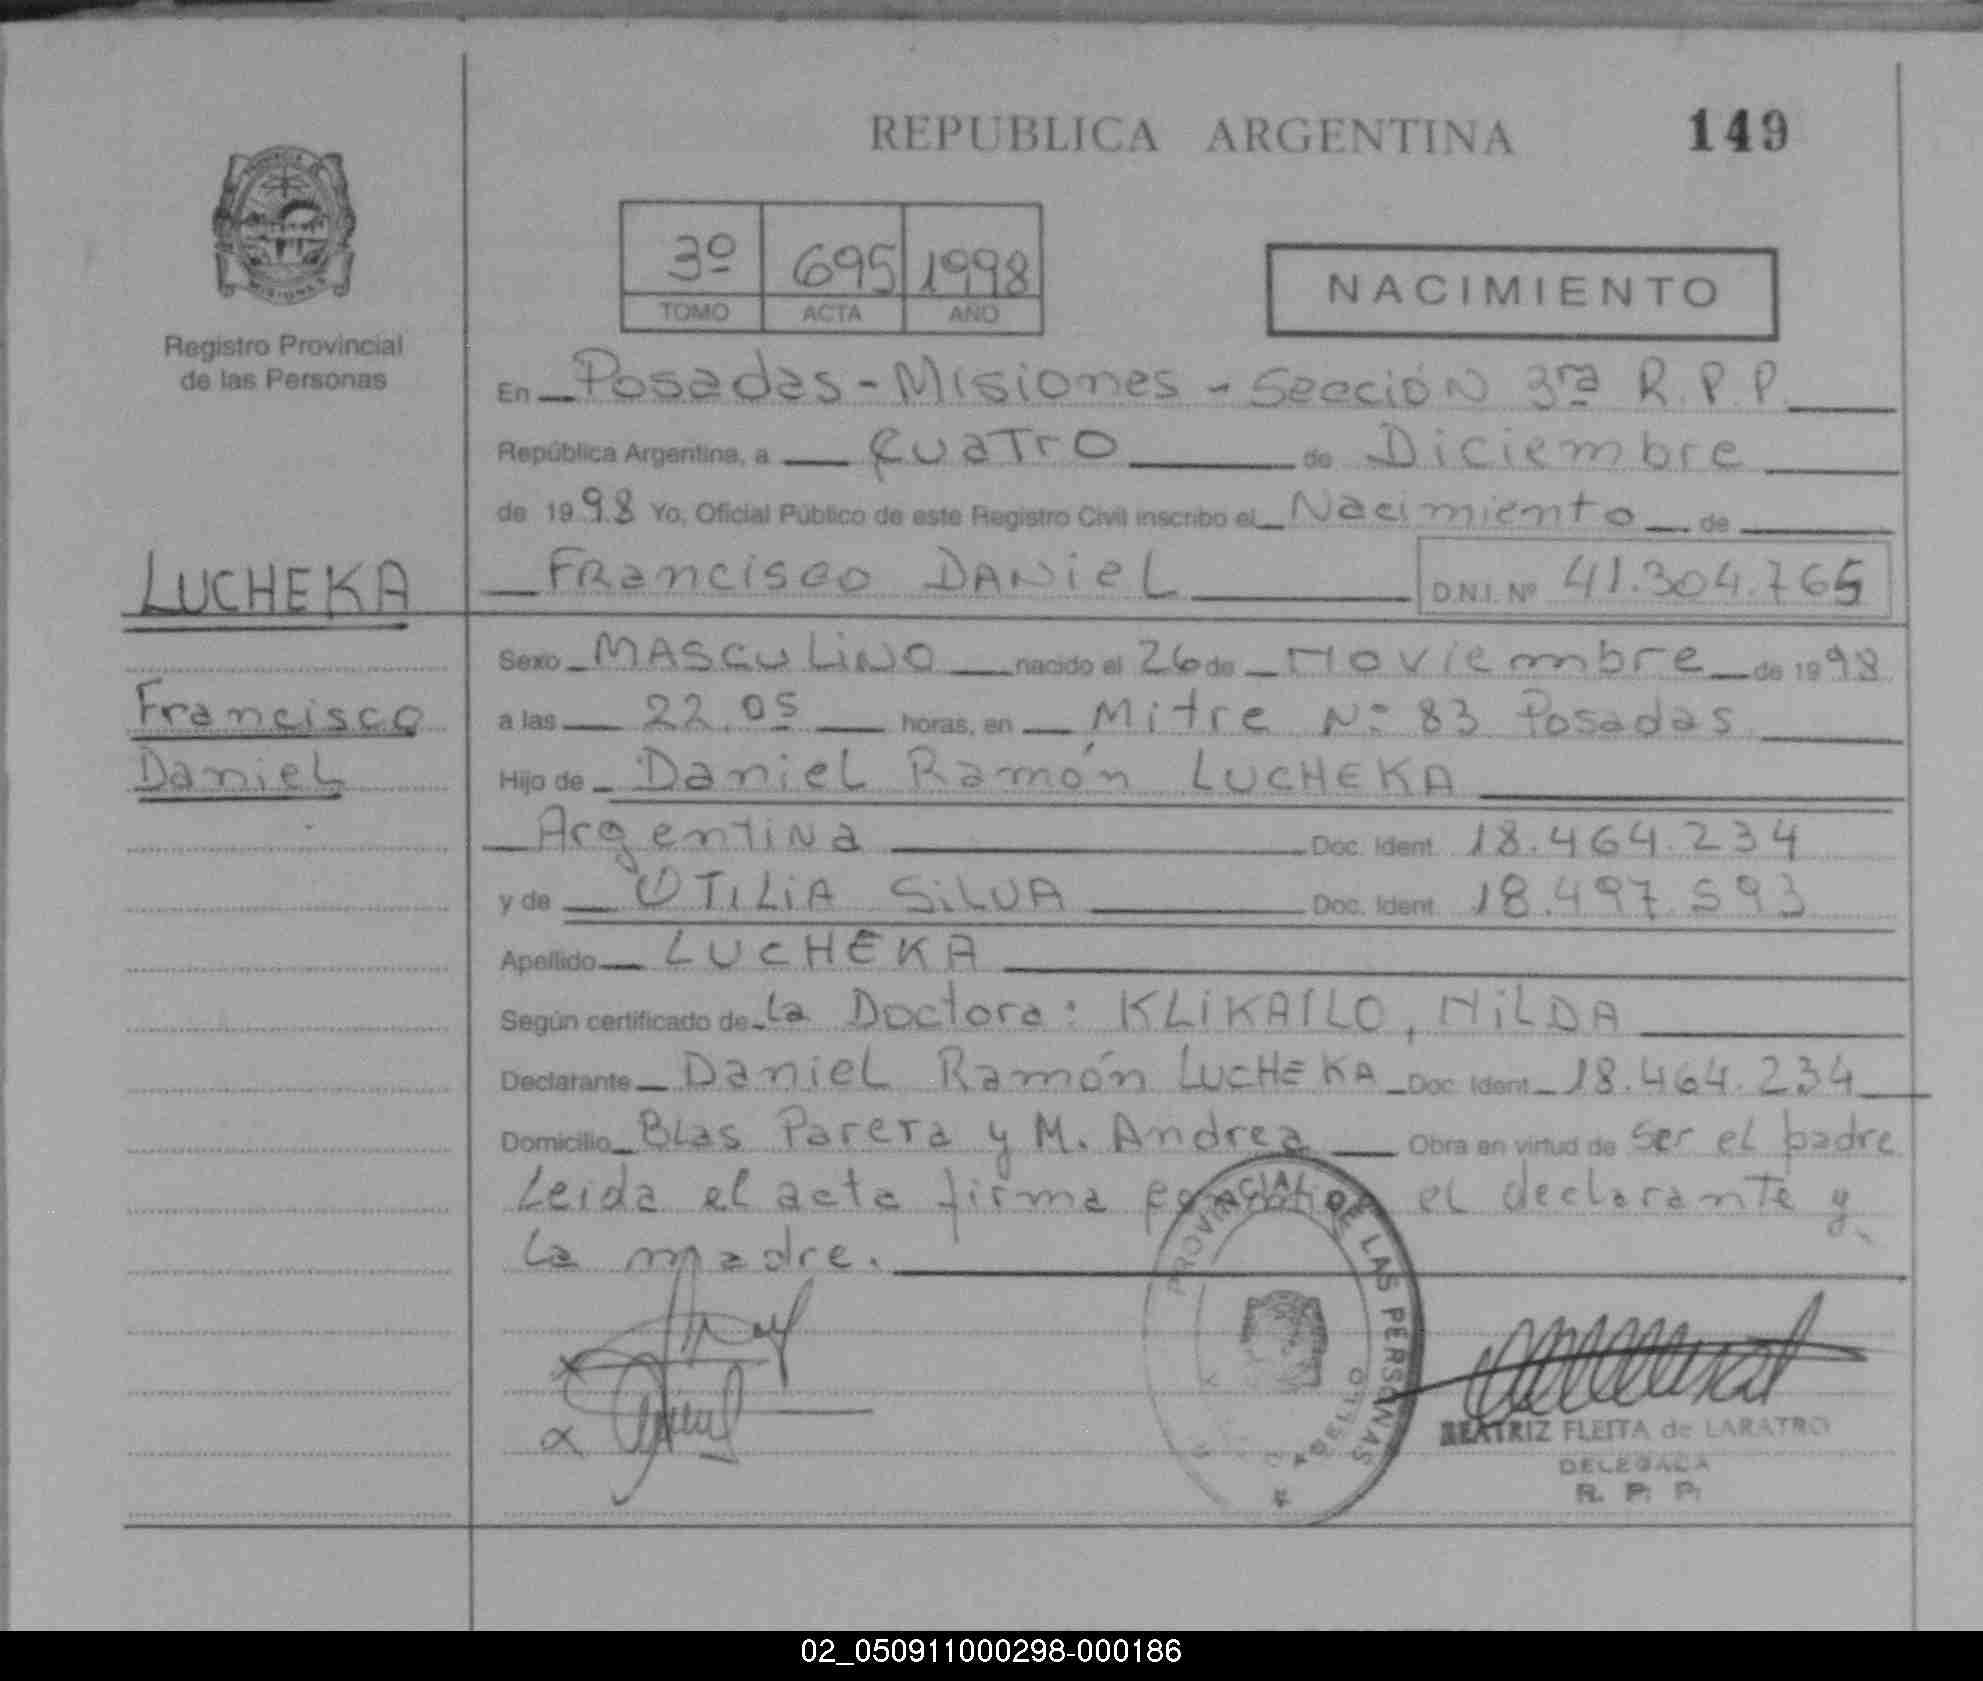 REPUBLICA ARGENTINA 149
3º 695 1998
TOMO ACTA AÑO
NACIMIENTO
Registro Provincial
de las Personas
En Posadas - Misiones - Sección 3ra R.P.P.
República Argentina, a Cuatro de Diciembre
de 1998 Yo, Oficial Público de este Registro Civil inscribo el Nacimiento de
LUCHEKA
Francisco DANIEL D.N.I. Nº 41.304.765
Sexo MASCULINO nacido el 26 de Noviembre de 1998
Francisco
a las 22.05 horas, en Mitre Nº 83 Posadas
Daniel
Hijo de Daniel Ramón LUCHEKA
Argentina Doc. Ident. 18.464.234
y de OTILIA SILVA Doc. Ident. 18.497.593
Apellido LUCHEKA
Según certificado de la Doctora: KLIKAILO, NILDA
Declarante Daniel Ramón LUCHEKA Doc. Ident. 18.464.234
Domicilio Blas Parera y M. Andrea Obra en virtud de ser el padre
Leida el acta firma el declarante y
la madre.
PROVINCIAL DE LAS PERSONAS
BEATRIZ FLEITA de LARATRO
DELEGADA
R. P. P.
02_050911000298-000186